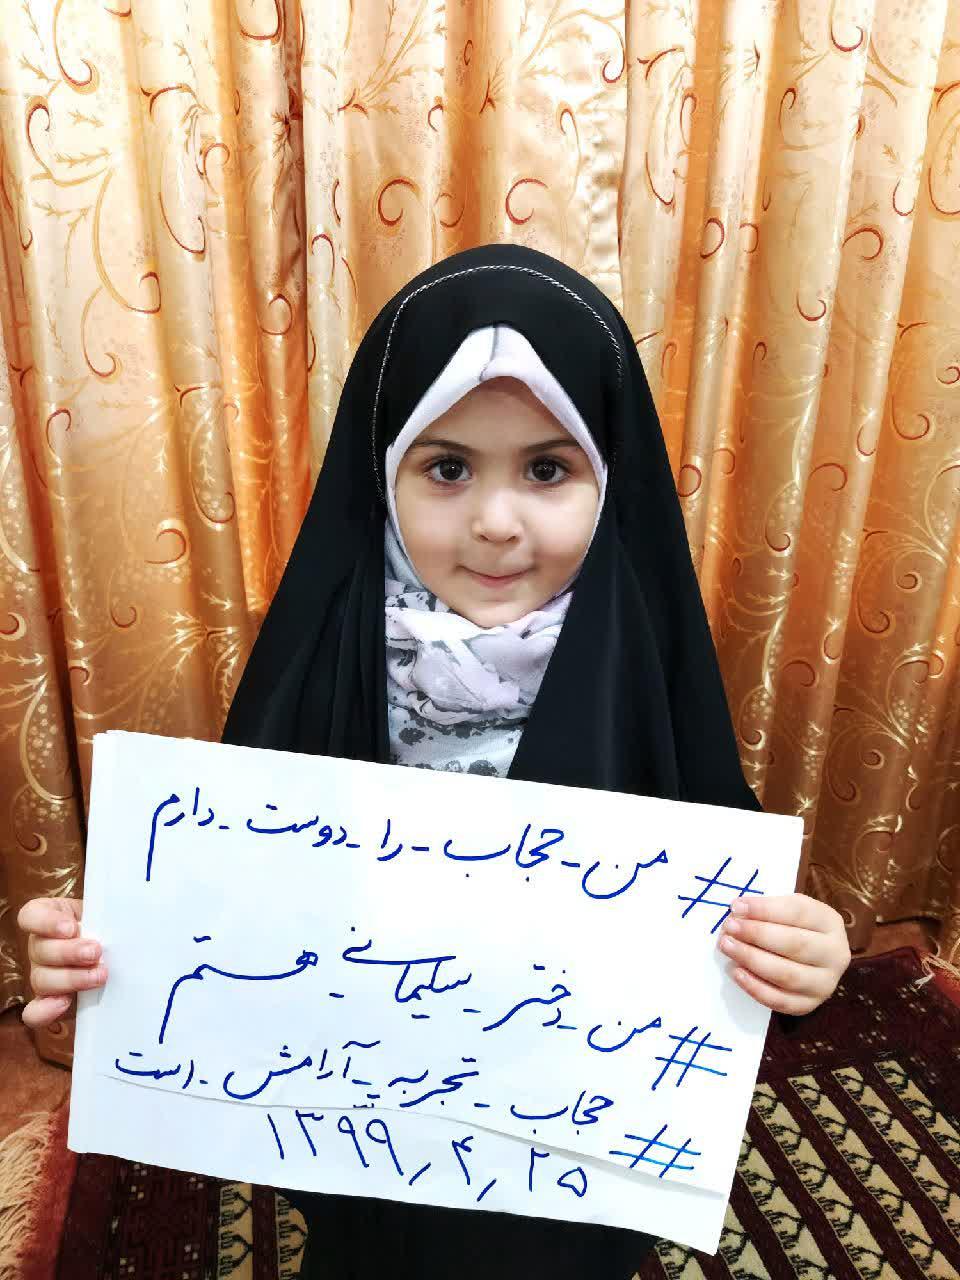 #من_حجاب_را_دوست_دارم
#من_دختر_سلیمانی_هستم
#حجاب_تجربه_آرامش_است
۱۳۹۹٫۴٫۲۵